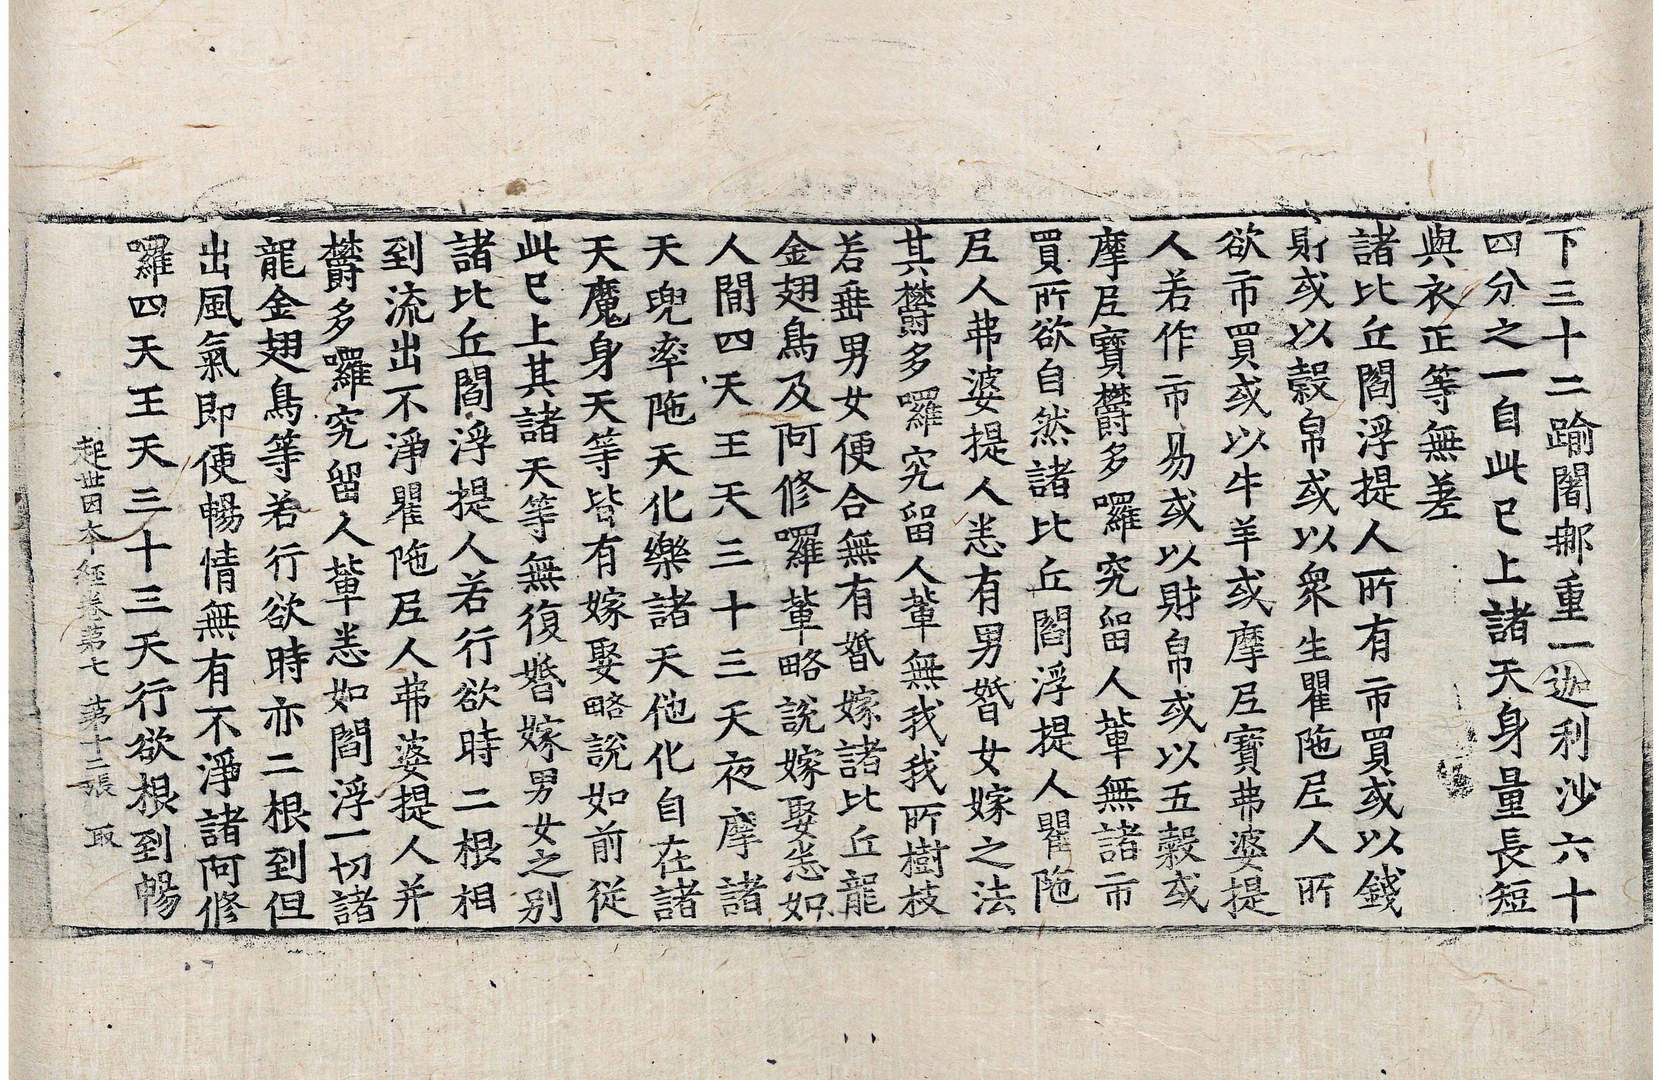 下三十二踰闍那重一迦利沙六十
四分之一自此已上諸天身量長短
與衣正等無差
諸比丘閻浮提人所有市買或以錢
財或以穀帛或以衆生瞿陁尼人所
欲市買或以牛羊或摩尼寶弗婆提
人若作市易或以財帛或以五穀或
摩尼寶欝多囉究留人輩無諸市
買所欲自然諸比丘閻浮提人瞿陁
尼人弗婆提人悉有男婚女嫁之法
其欝多囉究留人輩無我我所樹枝
若垂男女便合無有婚嫁諸比丘龍
金翅鳥及阿修囉輩略說嫁娶悉如
人間四天王天三十三天夜摩諸
天兜率陁天化樂諸天他化自在諸
天魔身天等皆有嫁娶略說如前從
此已上其諸天等無復婚嫁男女之別
諸比丘閻浮提人若行欲時二根相
到流出不淨瞿陁尼人弗婆提人并
欝多囉究留人輩悉如閻浮一切諸
龍金翅鳥等若行欲時亦二根到但
出風氣即便暢情無有不淨諸阿修
囉四天王天三十三天行欲根到暢
起世因本經卷第七 第十二張 取